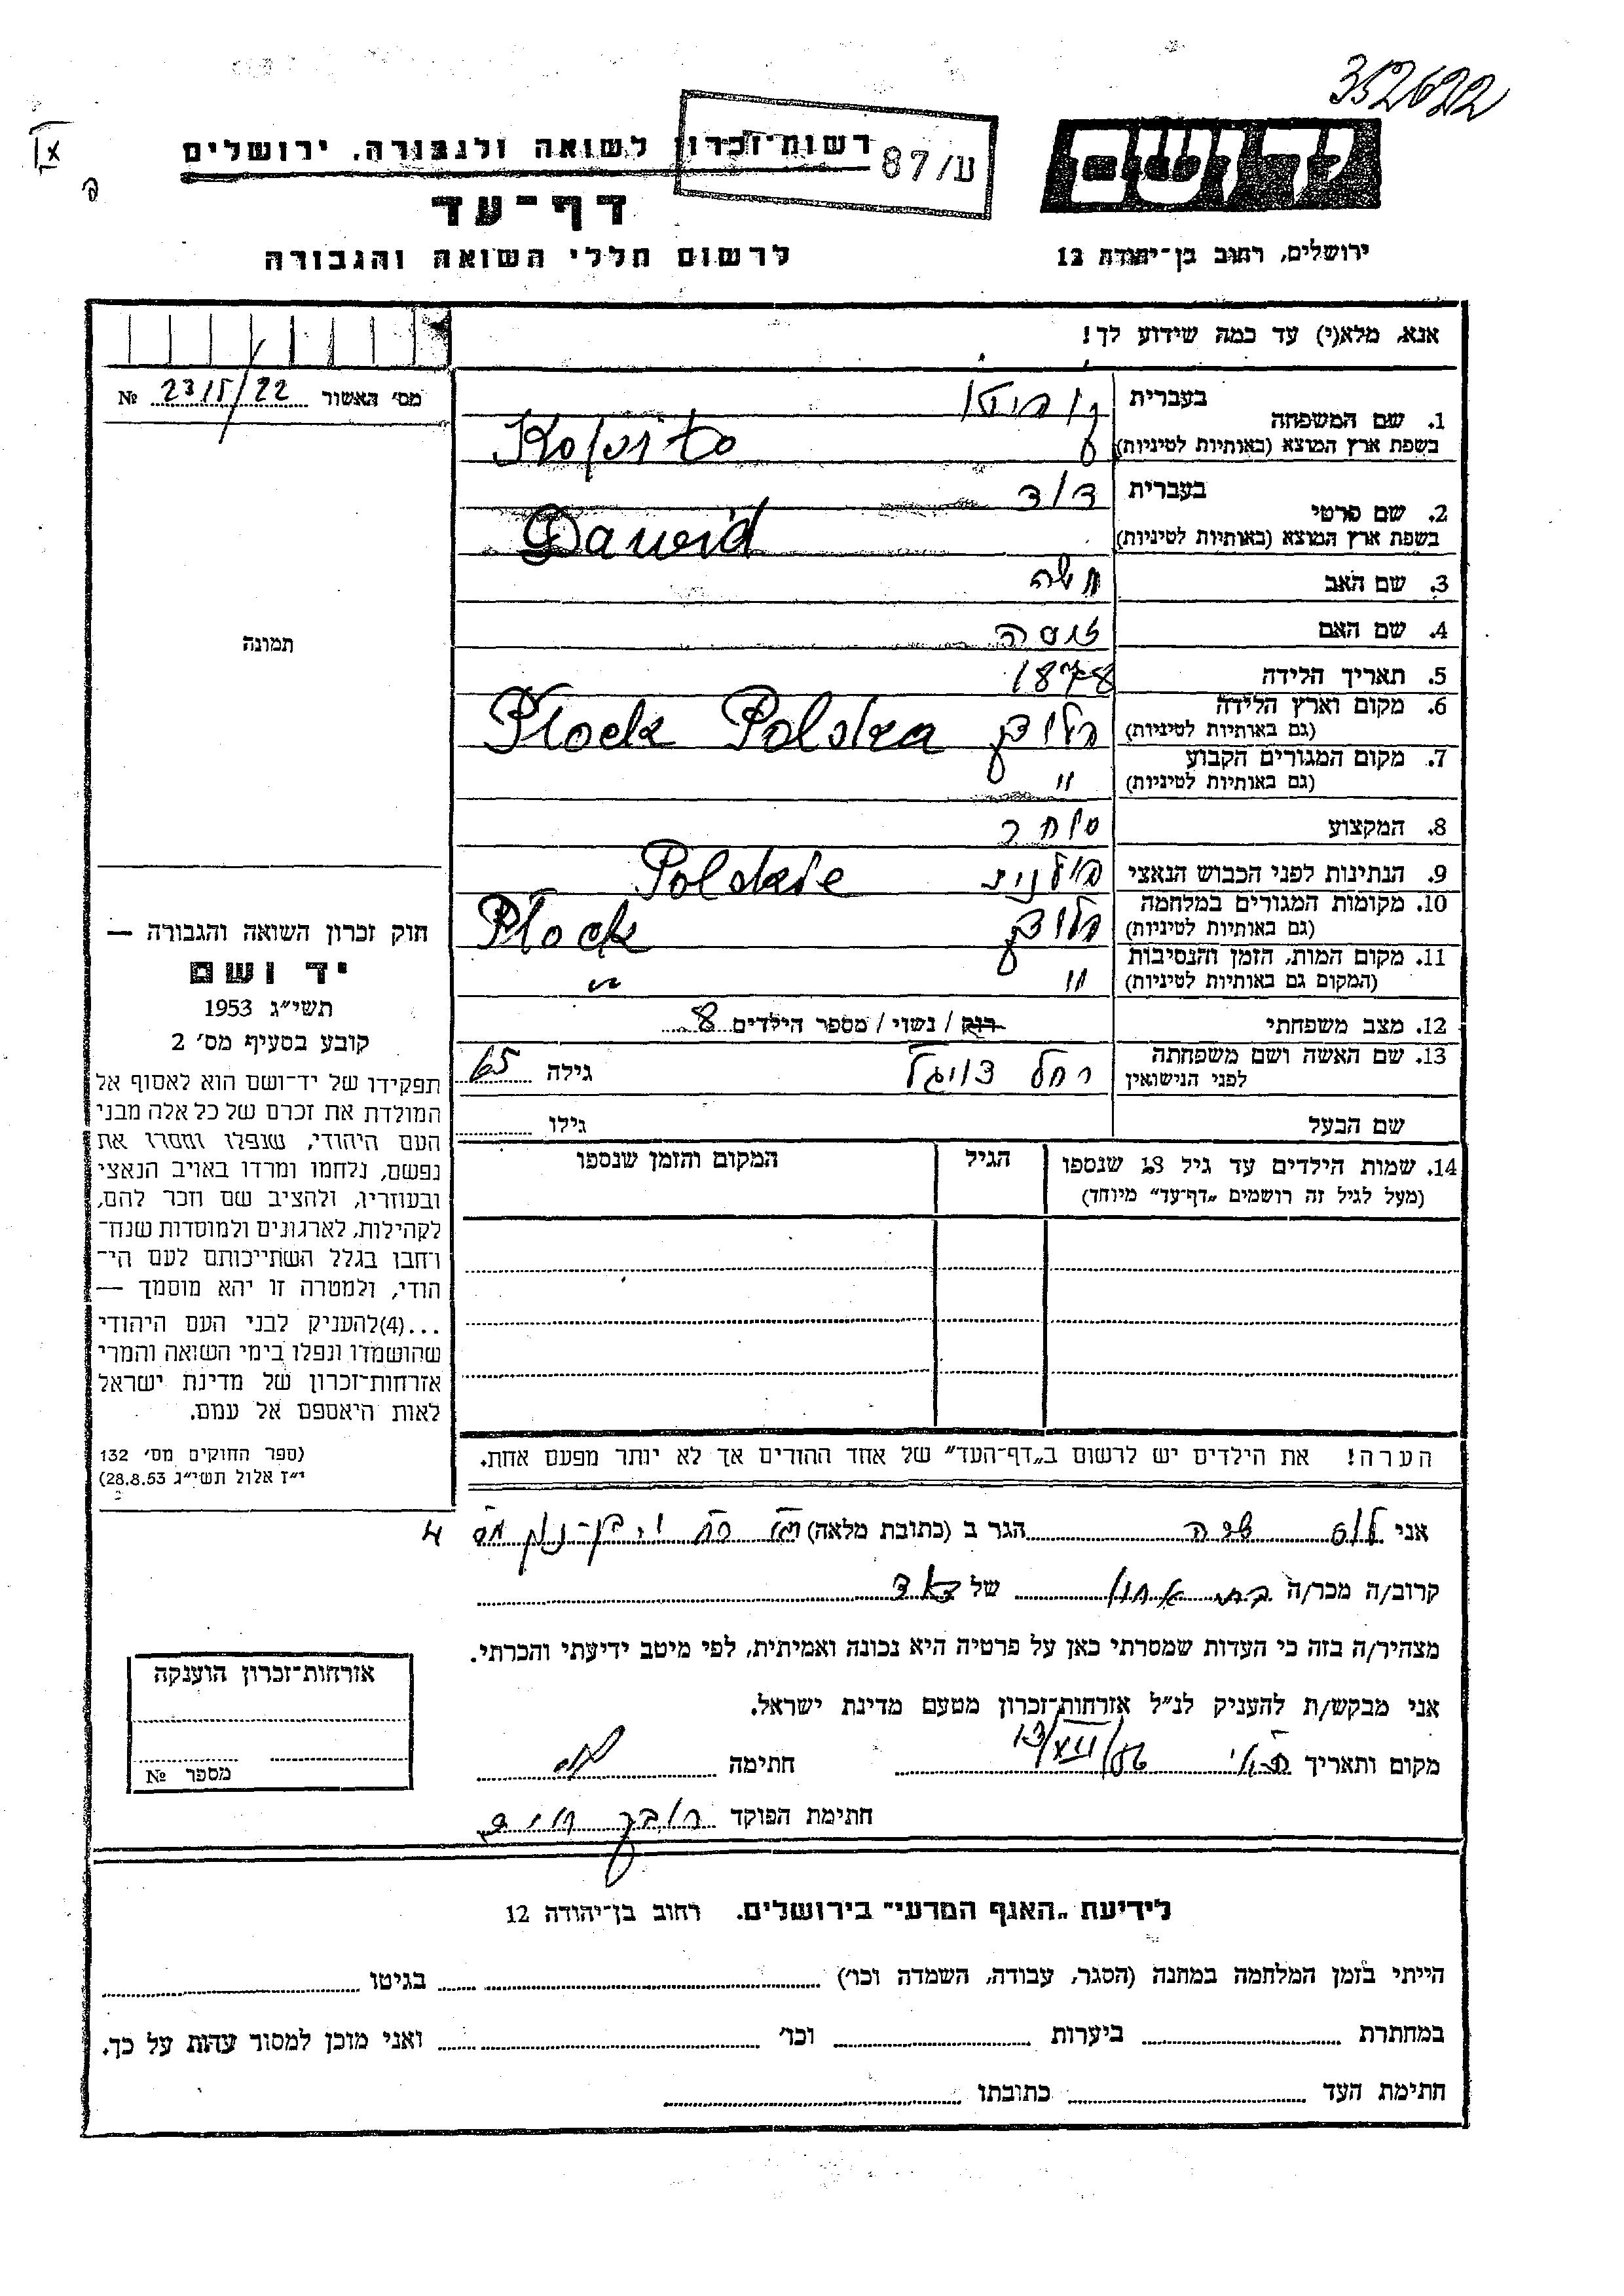 352622
יד ושם
רשות־זכרון לשואה ולגבורה, ירושלים
ע/87
דף־עד
ירושלים, רחוב בן־יהודה 12
לרשום חללי השואה והגבורה
אנא, מלא(י) עד כמה שידוע לך!
מס׳ האשור № 23/5/22
1. שם המשפחה
בעברית
בשפת ארץ המוצא (באותיות לטיניות)
2. שם פרטי
בעברית דוד
בשפת ארץ המוצא (באותיות לטיניות) Dawid
3. שם האב משה
4. שם האם
5. תאריך הלידה 1878
6. מקום וארץ הלידה
(גם באותיות לטיניות) פלוצק Płock Polska
7. מקום המגורים הקבוע
(גם באותיות לטיניות) "
8. המקצוע סוחר
9. הנתינות לפני הכבוש הנאצי פולנית Polskie
10. מקומות המגורים במלחמה
(גם באותיות לטיניות) פלוצק Płock
11. מקום המות, הזמן והנסיבות
(המקום גם באותיות לטיניות) " "
12. מצב משפחתי רוק / נשוי / מספר הילדים 8
13. שם האשה ושם משפחתה
לפני הנישואין רחל גילה 65
שם הבעל גילו
14. שמות הילדים עד גיל 18 שנספו הגיל המקום והזמן שנספו
(מעל לגיל זה רושמים „דף־עד” מיוחד)
הערה! את הילדים יש לרשום ב„דף־העד” של אחד ההורים אך לא יותר מפעם אחת.
תמונה
חוק זכרון השואה והגבורה —
יד ושם
תשי״ג 1953
קובע בסעיף מס׳ 2
תפקידו של יד־ושם הוא לאסוף אל
המולדת את זכרם של כל אלה מבני
העם היהודי, שנפלו ומסרו את
נפשם, נלחמו ומרדו באויב הנאצי
ובעוזריו, ולהציב שם וזכר להם,
לקהילות, לארגונים ולמוסדות שנח־
רחבו בגלל השתייכותם לעם הי־
הודי, ולמטרה זו יהא מוסמך —
...(4)להעניק לבני העם היהודי
שהושמדו ונפלו בימי השואה והמרי
אזרחות־זכרון של מדינת ישראל
לאות היאספם אל עמם.
(ספר החוקים מס׳ 132
י״ז אלול תשי״ג 28.8.53)
אני הגר ב (כתובת מלאה)
קרוב/ה מכר/ה של דוד
מצהיר/ה בזה כי העדות שמסרתי כאן על פרטיה היא נכונה ואמיתית, לפי מיטב ידיעתי והכרתי.
אני מבקש/ת להעניק לנ״ל אזרחות־זכרון מטעם מדינת ישראל.
מקום ותאריך 13/XII/56 חתימה
חתימת הפוקד
אזרחות־זכרון הוענקה
מספר №
לידיעת „האגף המדעי” בירושלים. רחוב בן־יהודה 12
הייתי בזמן המלחמה במחנה (הסגר, עבודה, השמדה וכו׳) בגיטו
במחתרת ביערות וכו׳ ואני מוכן למסור עדות על כך.
חתימת העד כתובתו